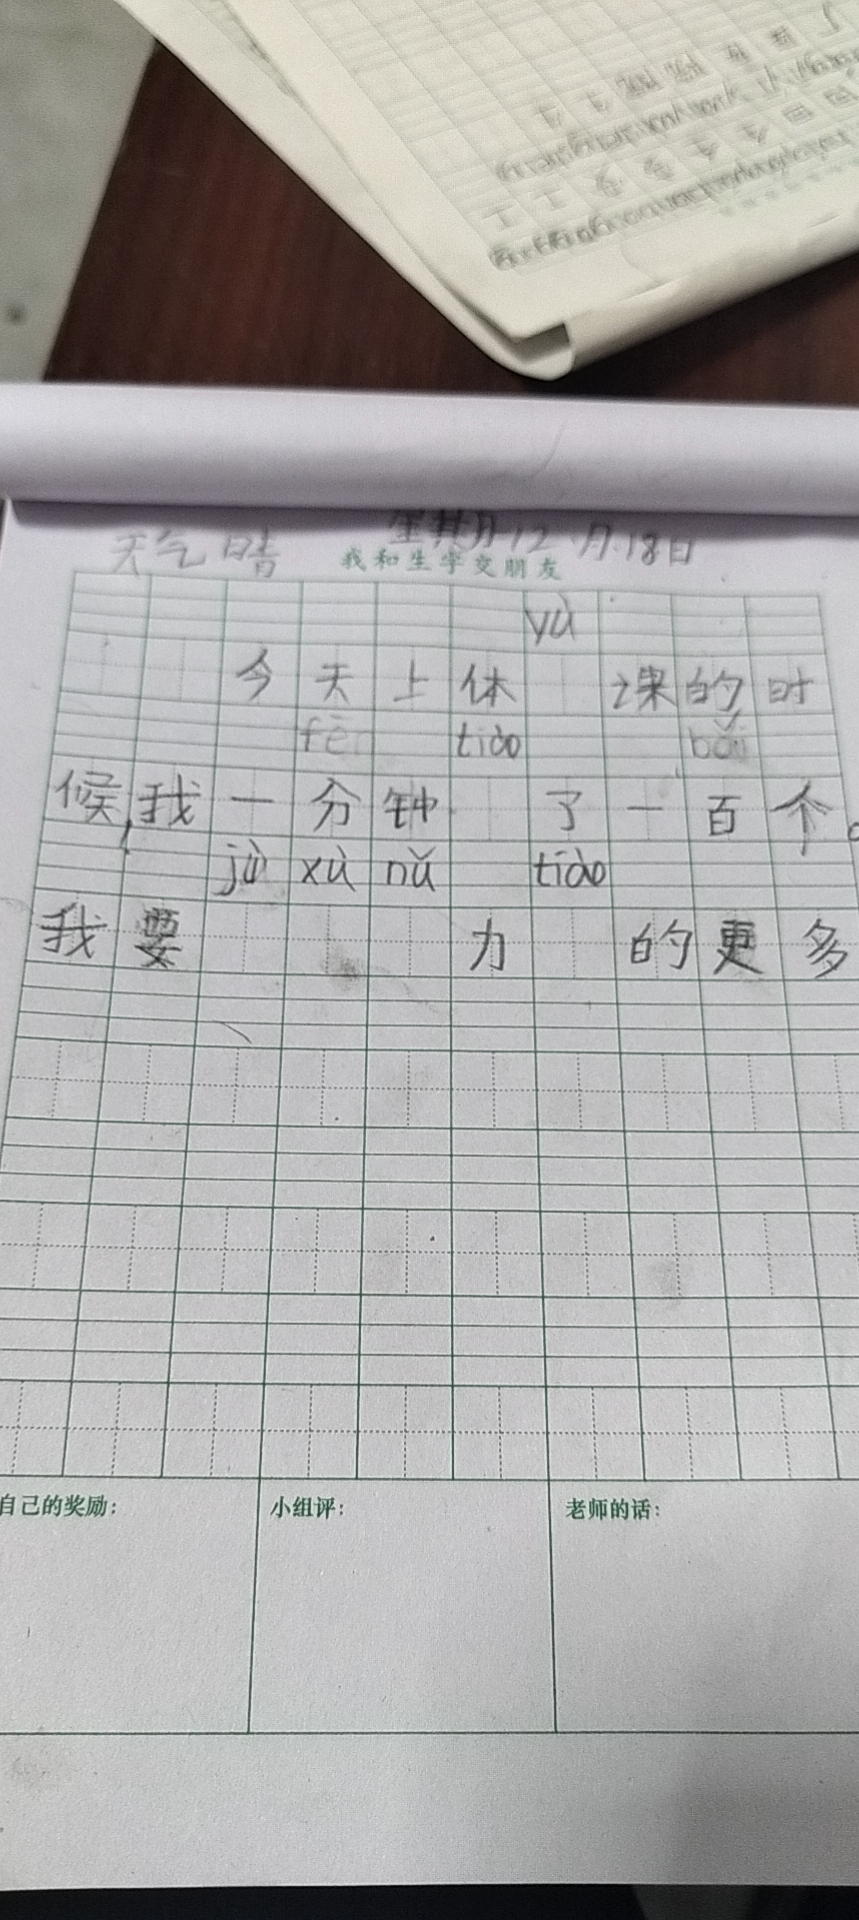 天气晴 星期 12月18日
我和生字交朋友
yù
今天上体 课的时
fēn tiào bǎi
候,我一分钟 了一百个。
jù xù nǔ tiào
我要 力 的更多
自己的奖励: 小组评: 老师的话: